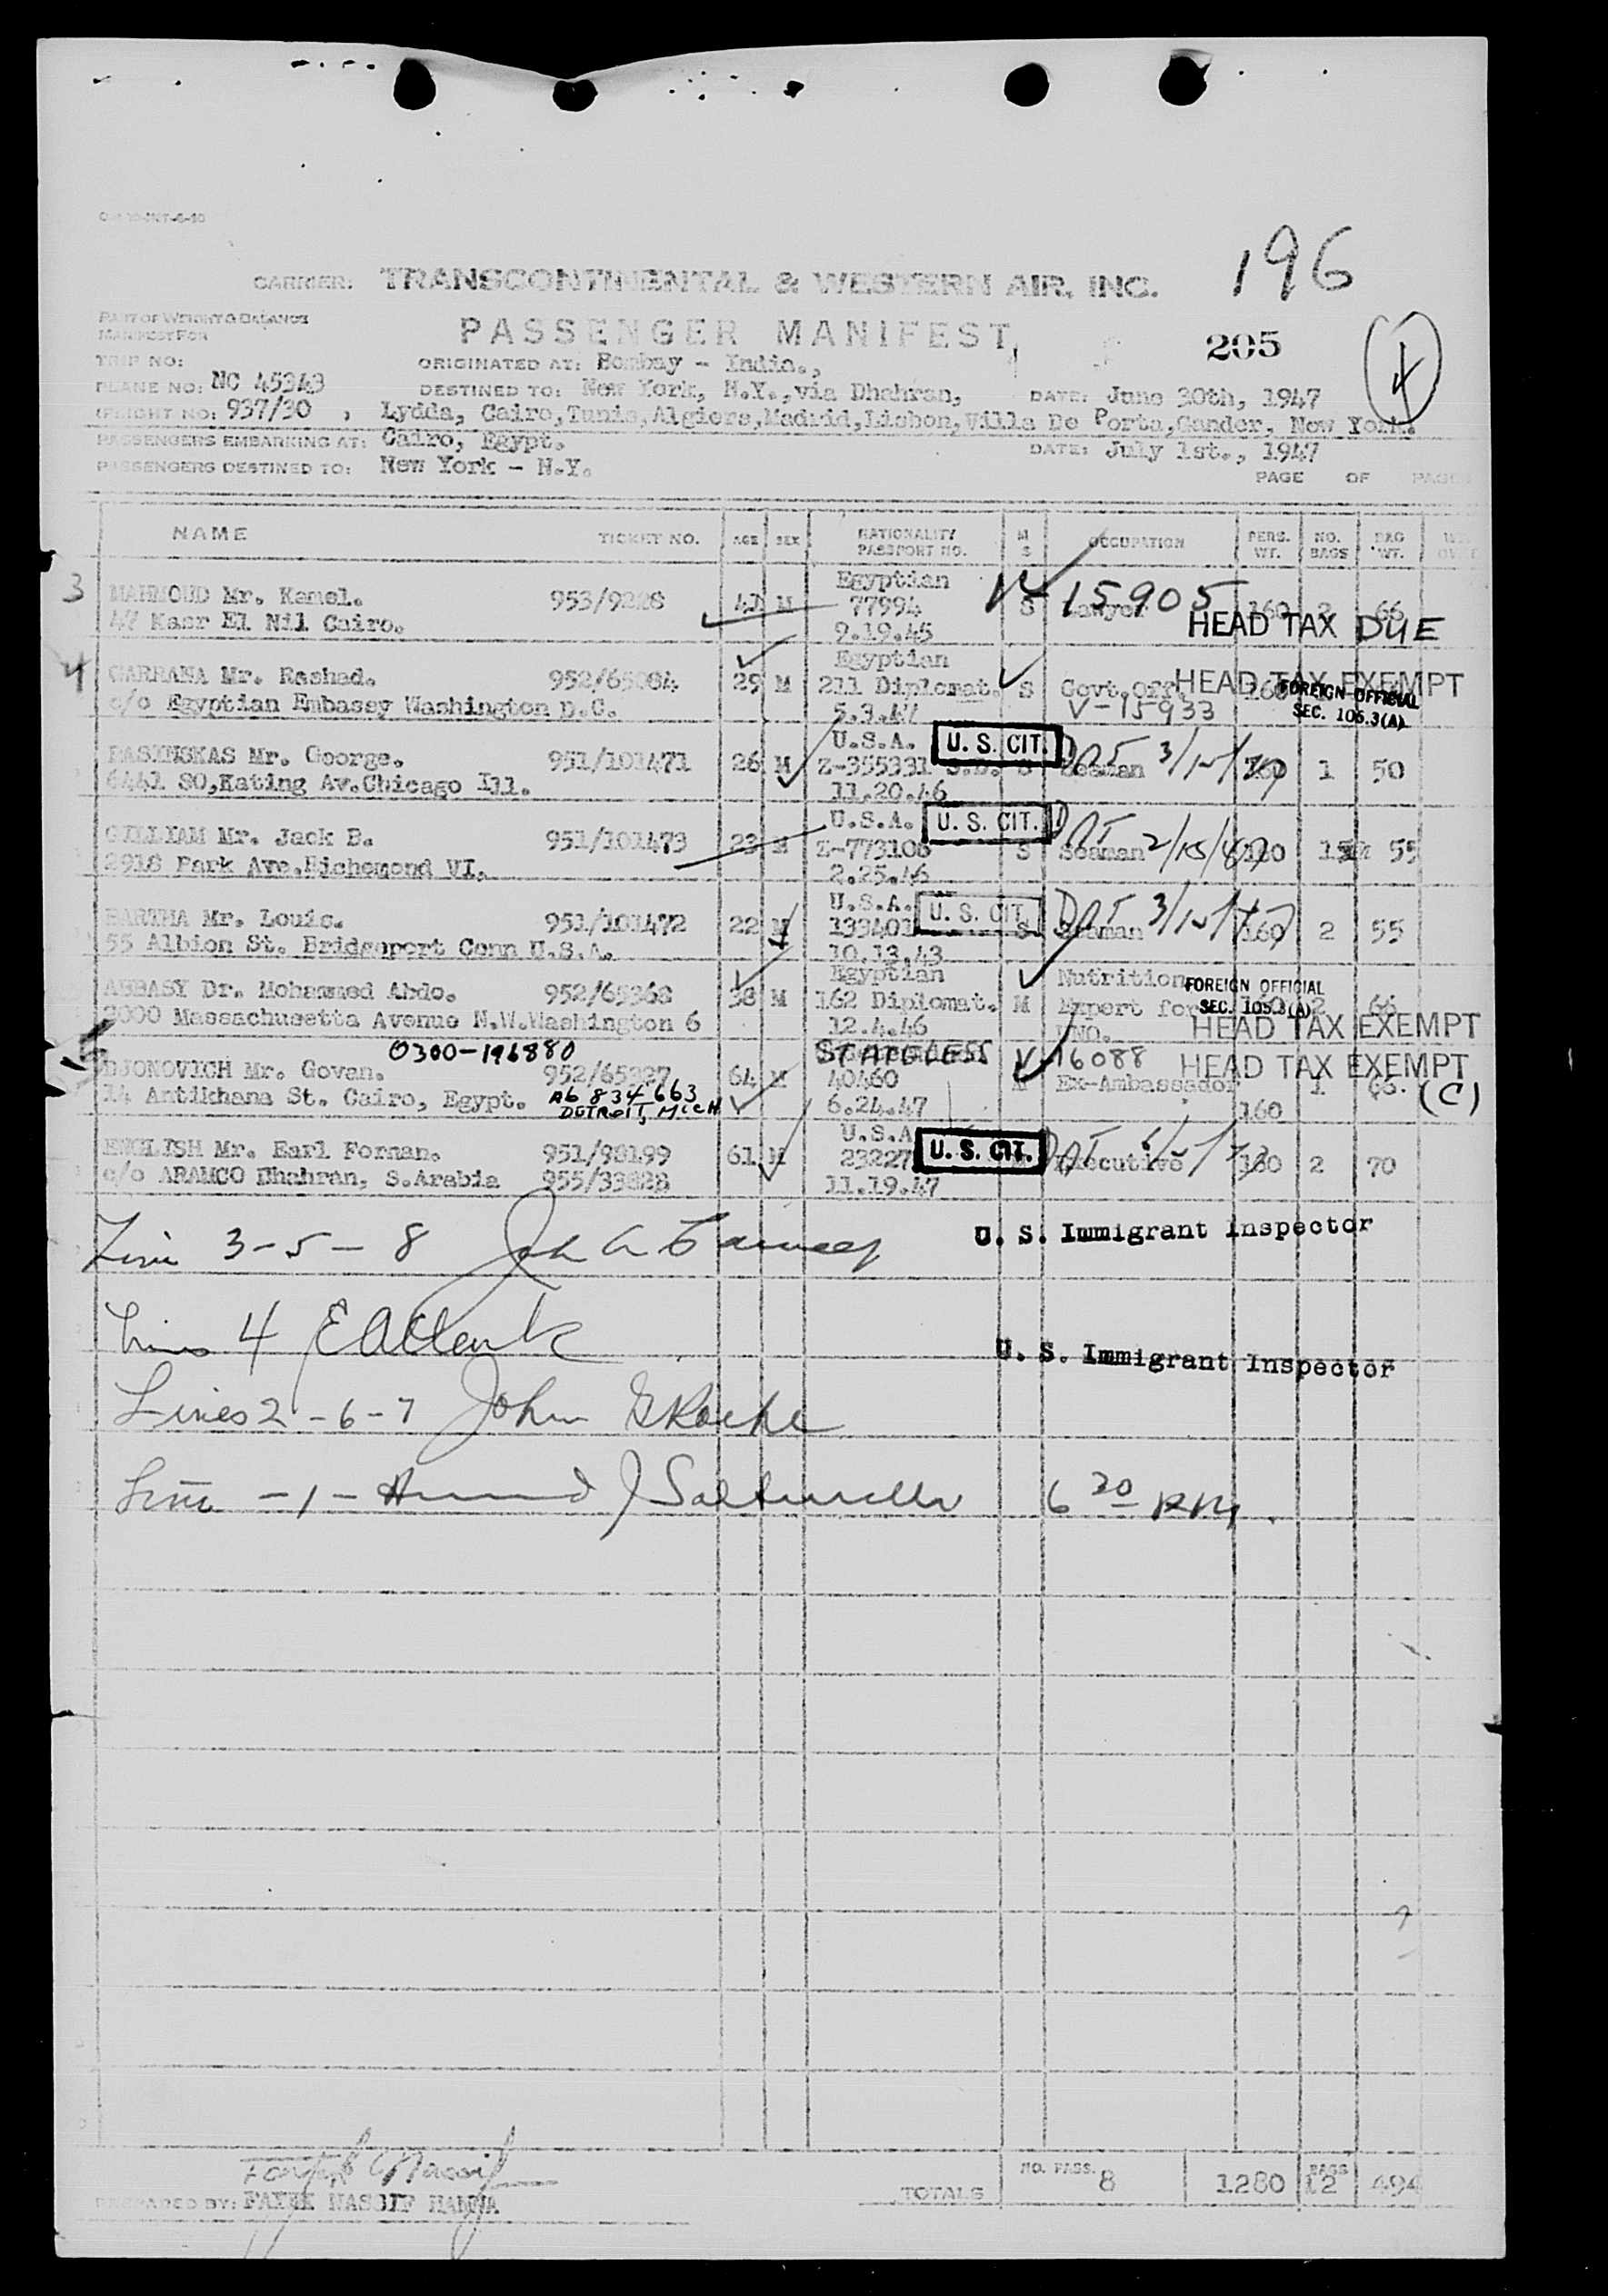 196
CARRIER: TRANSCONTINENTAL & WESTERN AIR, INC.
PART OF WEIGHT & BALANCE
MANIFEST FOR
PASSENGER MANIFEST
205
4
TRIP NO:
ORIGINATED AT: Bombay - India.,
PLANE NO: NC 45343
DESTINED TO: New York, N.Y.,via Dhahran,
DATE: June 30th, 1947
FLIGHT NO: 937/30 , Lydda, Cairo,Tunis,Algiers,Madrid,Lisbon,Villa De Porto,Gander, New York.
PASSENGERS EMBARKING AT: Cairo, Egypt.
DATE: July 1st., 1947
PASSENGERS DESTINED TO: New York - N.Y.
PAGE OF PAGES
NAME TICKET NO. AGE SEX NATIONALITY PASSPORT NO. M S OCCUPATION PERS. WT. NO. BAGS BAG WT.
3 MAHMOUD Mr. Kamel. 953/9228 47 M Egyptian 77994 S Lawyer 160 2 66
47 Kasr El Nil Cairo. 9.19.45
V 15905
HEAD TAX DUE
4 GARRANA Mr. Rashad. 952/65084 29 M Egyptian 211 Diplomat. S Govt.Off. 160
c/o Egyptian Embassy Washington D.C. 5.3.47 V-15933
HEAD TAX EXEMPT
FOREIGN OFFICIAL
SEC. 105.3(A)
PASINSKAS Mr. George. 951/101471 26 M U.S.A. Z-355331 S.B. S Seaman 160 1 50
6441 SO,Kating Av.Chicago Ill. 11.20.46
U. S. CIT.
GILLIAM Mr. Jack B. 951/101473 23 M U.S.A. Z-773106 S Seaman 160 55
2918 Park Ave.Richemond VI. 2.25.46
U. S. CIT.
BARTHA Mr. Louis. 951/101472 22 M U.S.A. 133401 S Seaman 160 2 55
55 Albion St. Bridgeport Conn U.S.A. 10.13.43
U. S. CIT.
ABBASY Dr. Mohammed Abdo. 952/65368 38 M Egyptian 162 Diplomat. M Nutrition Expert for UNO. 160 2 66
3000 Massachusetts Avenue N.W.Washington 6 12.4.46
FOREIGN OFFICIAL
SEC. 105.3(A)
HEAD TAX EXEMPT
0300-196880
STATELESS
V 16088
HEAD TAX EXEMPT
(C)
DJONOVICH Mr. Govan. 952/65327 64 M 40460 M Ex-Ambassador 160 1 66.
14 Antikhana St. Cairo, Egypt. 6.24.47
A6 834 663
DETROIT, MICH
ENGLISH Mr. Earl Forman. 951/98199 61 M U.S.A. 23227 M Executive 160 2 70
c/o ARAMCO Dhahran, S.Arabia 955/33828 11.19.47
U. S. CIT.
Line 3-5-8
U. S. Immigrant Inspector
Lines 4
U. S. Immigrant Inspector
Lines 2-6-7 John
Line -1- 6 30 PM.
NO. PASS. 8 1280 BAGS 12 494
TOTALS
PREPARED BY: FAYEK NASSIF HANNA